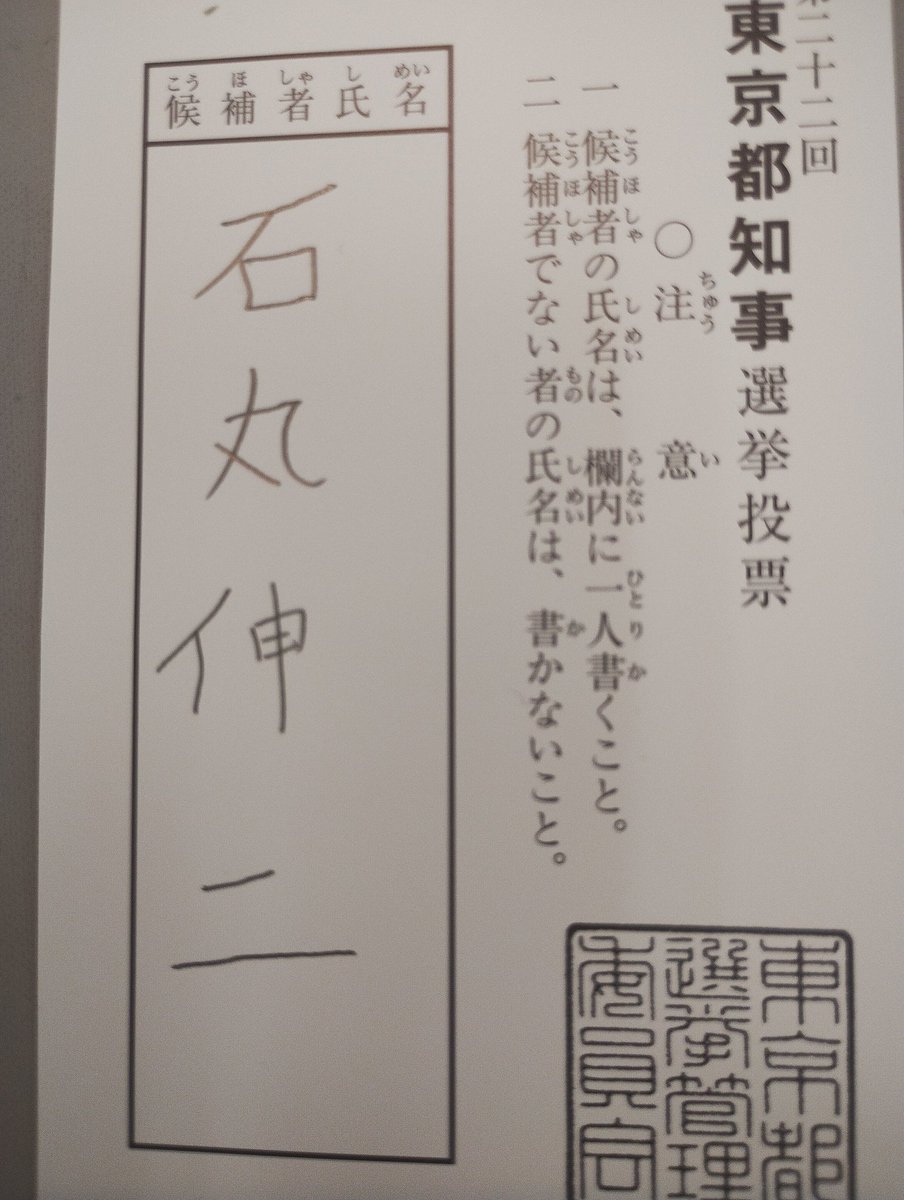 第二十二回
東京都知事選挙投票
〇注意
一 候補者の氏名は、欄内に一人書くこと。
二 候補者でない者の氏名は、書かないこと。
候補者氏名
石丸伸二
東京都
選挙管理
委員会